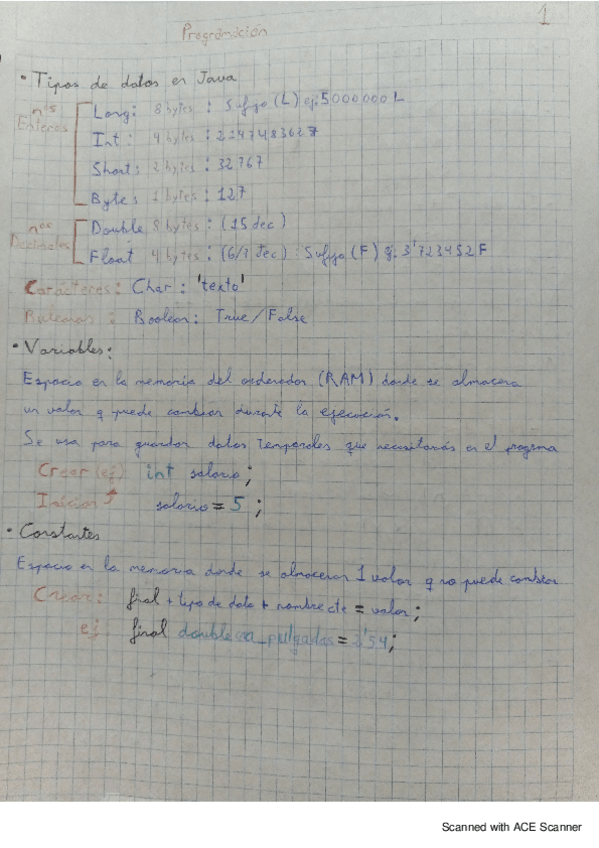 Programación
1
• Tipos de datos en Java
nºs Enteros
Long: 8 bytes : Sufijo (L) ej: 5000000 L
Int: 4 bytes : 2147483627
Short: 2 bytes : 32767
Bytes 1 bytes : 127
nºs Decimales
Double 8 bytes : (15 dec)
Float 4 bytes : (6/7 dec) : Sufijo (F) ej. 3'723452 F
Carácteres : Char : 'texto'
Buleanos : Boolean : True/False
• Variables:
Espacio en la memoria del ordenador (RAM) donde se almacena
un valor q puede cambiar durante la ejecución.
Se usa para guardar datos temporales que necesitarás en el programa
Crear (ej) int salario;
Iniciar salario = 5 ;
• Constantes
Espacio en la memoria donde se almacenan 1 valor q no puede cambiar
Crear: final + tipo de dato + nombre cte = valor ;
ej final double ca_pulgadas = 2'54;
Scanned with ACE Scanner